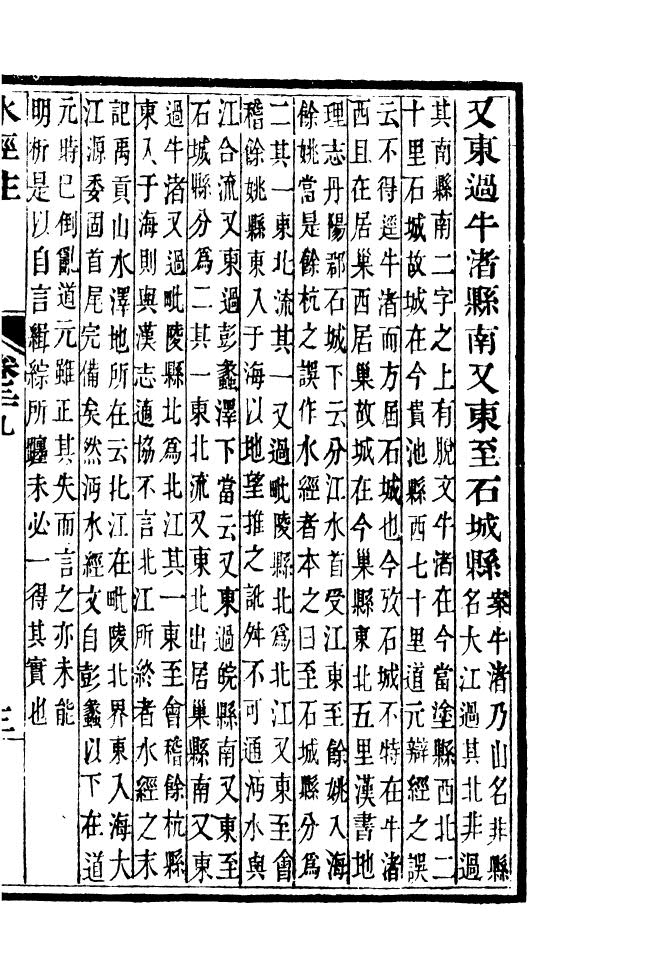 又東過牛渚縣南又東至石城縣
案牛渚乃山名非縣
名大江過其北非過
其南縣南二字之上有脫文牛渚在今當塗縣西北二
十里石城故城在今貴池縣西七十里道元辯經之誤
云不得逕牛渚而方屆石城也今攷石城不特在牛渚
西且在居巢西居巢故城在今巢縣東北五里漢書地
理志丹陽郡石城下云分江水首受江東至餘姚入海
餘姚當是餘杭之誤作水經者本之曰至石城縣分爲
二其一東北流其一又過毗陵縣北爲北江又東至會
稽餘姚縣東入于海以地望推之訛舛不可通沔水與
江合流又東過彭蠡澤下當云又東過皖縣南又東至
石城縣分爲二其一東北流又東北出居巢縣南又東
過牛渚又過毗陵縣北爲北江其一東至會稽餘杭縣
東入于海則與漢志適協不言北江所終者水經之末
記禹貢山水澤地所在云北江在毗陵北界東入海大
江源委固首尾完備矣然沔水經文自彭蠡以下在道
元時已倒亂道元雖正其失而言之亦未能
明析是以自言緝綜所纏未必一得其實也
水經注
卷二九
三